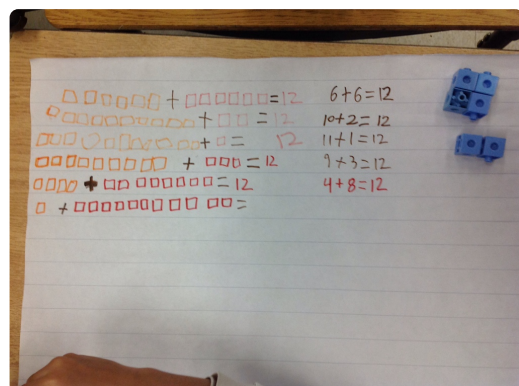 + = 12 6+6=12
+ = 12 10+2=12
+ = 12 11+1=12
+ = 12 9+3=12
+ = 12 4+8=12
+ =